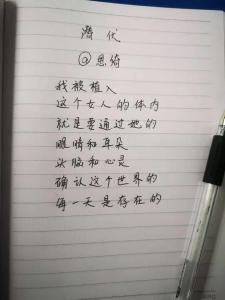 潜伏
@思绮
我被植入
这个女人的体内
就是要通过她的
眼睛和耳朵
头脑和心灵
确认这个世界的
每一天是存在的